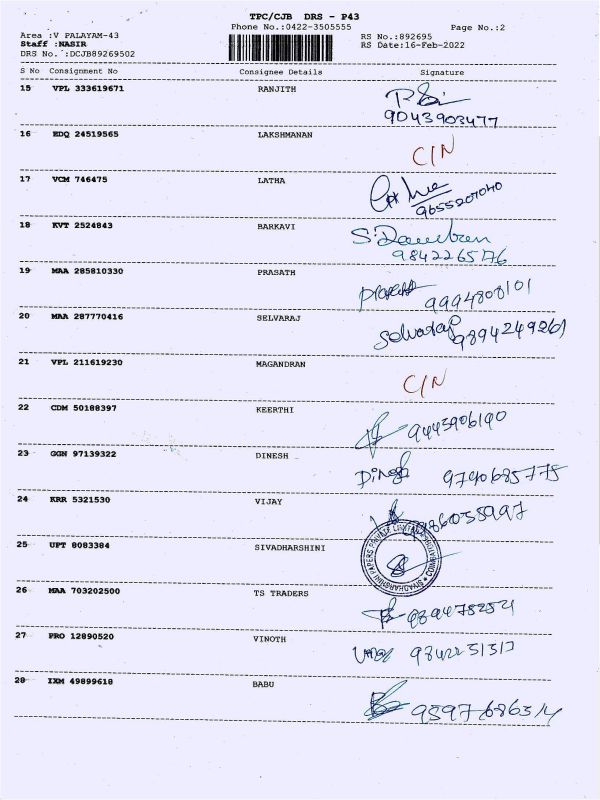 TPC/CJB DRS - P43
Phone No.:0422-3505555 Page No.:2
Area :V PALAYAM-43 RS No.:892695
Staff :NASIR RS Date:16-Feb-2022
DRS No. :DCJB89269502
S No Consignment No Consignee Details Signature
15 VPL 333619671 RANJITH
9043903477
16 EDQ 24519565 LAKSHMANAN
C/N
17 VCM 746475 LATHA
9655207040
18 KVT 2524843 BARKAVI
9842265176
19 MAA 285810330 PRASATH
Prasath 9994808101
20 MAA 287770416 SELVARAJ
Selvaraj 9894249261
21 VPL 211619230 MAGANDRAN
C/N
22 CDM 50188397 KEERTHI
9443906190
23 GGN 97139322 DINESH
Dinesh 9740685775
24 KRR 5321530 VIJAY
25 UPT 8083384 SIVADHARSHINI
SIVADHARSHINI PAPERS PRIVATE LIMITED
26 MAA 703202500 TS TRADERS
27 PRO 12890520 VINOTH
28 IXM 49899618 BABU